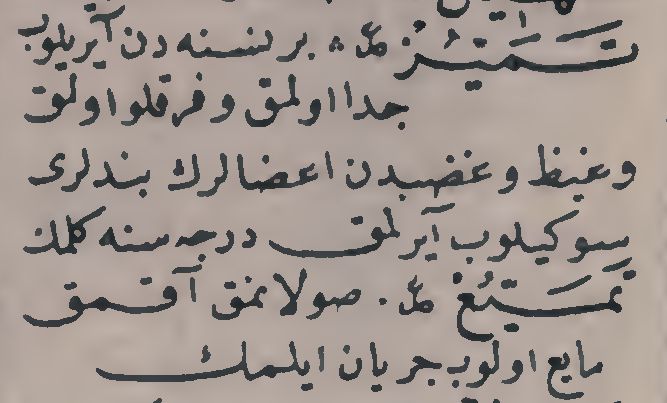 تَمَيُّز مص‍ . بر نسنه دن آيريلوب
جدا اولمق و فرقلو اولمق
و غيظ و غضبدن اعضالرك بندلرى
سوكيلوب آيرلمق درجه سنه كلمك
تَمَيُّغ مص‍ . صولانمق آقمق
مايع اولوب جريان ايلمك